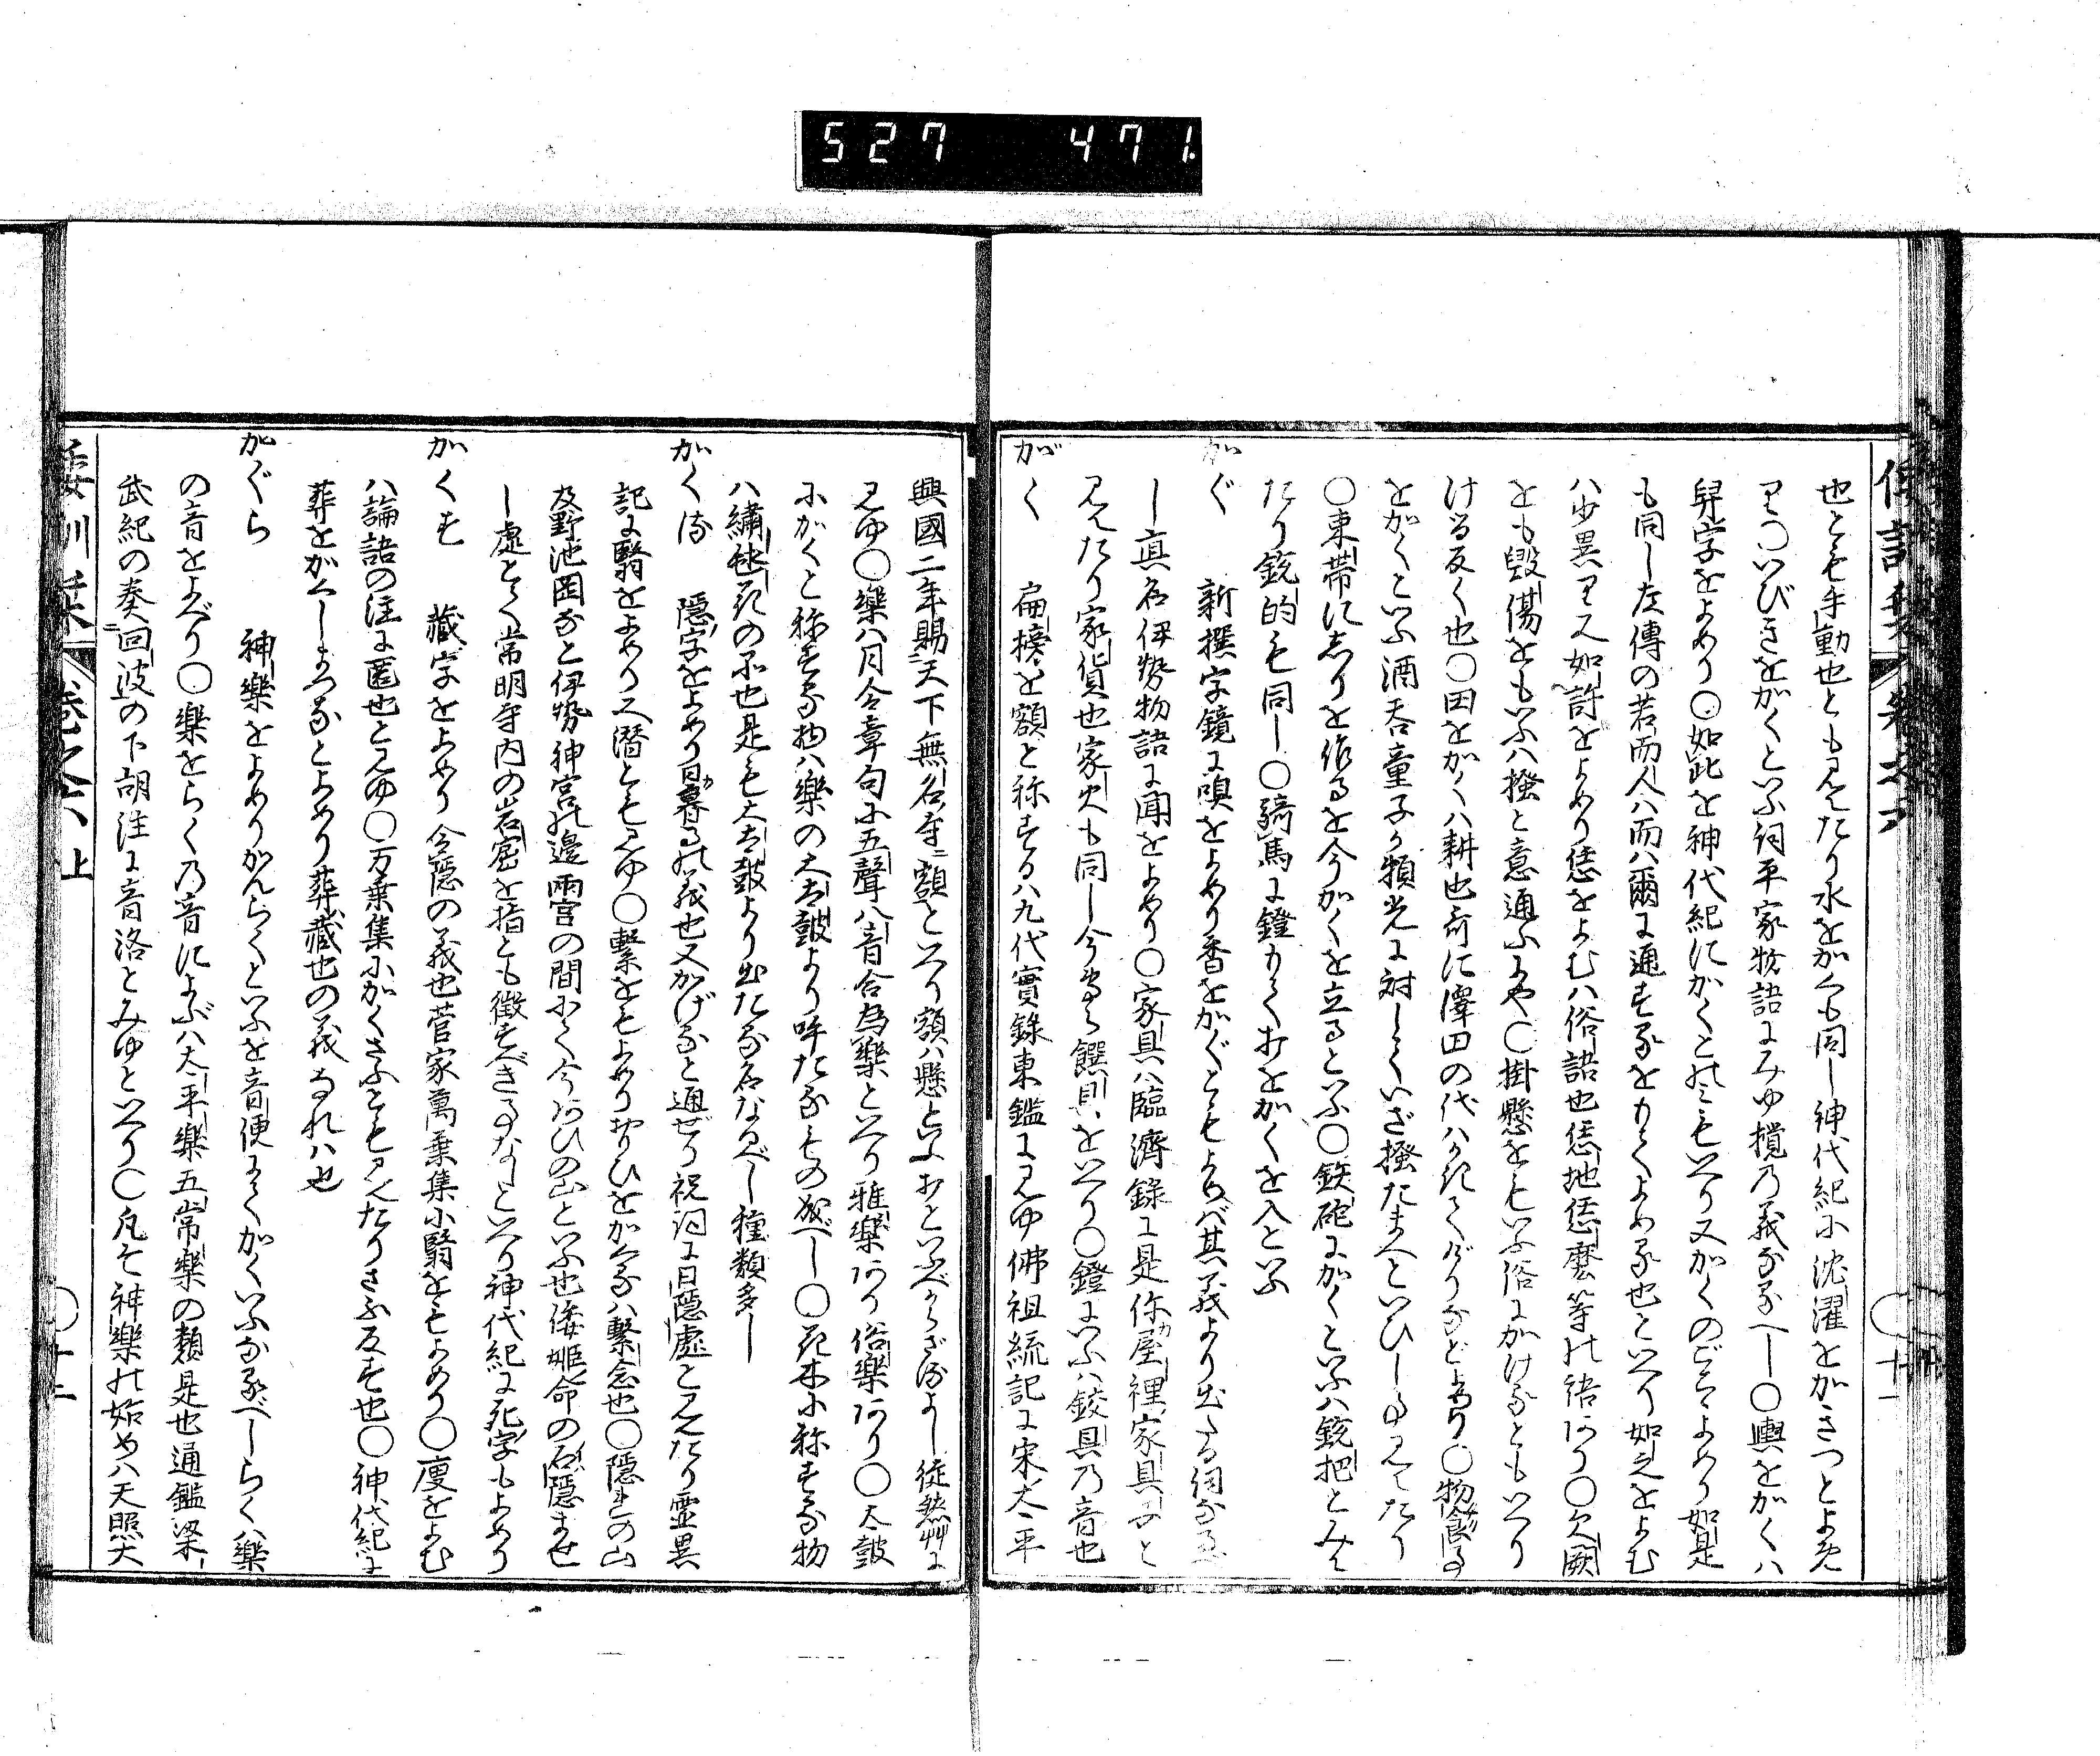 527 471.
也とも手動也ともみえたり水をかくも同し神代紀に沈濯をかきつとよみ
又〇いびきをかくといふ詞平家物語にみゆ攪の義なるへし〇輿をかくハ
舁字をよめり〇如此を神代紀にかくとのミもいへり又かくのごとよめり如是
も同し左傳の若而人ハ而ハ爾に通するをもてよめる也といへり如之をよむ
ハ少異り又如許をよめり恁をよむハ俗語也恁地恁麼等の語あり〇欠闕
とも毀傷をもいふハ撥と意通ふにや〇掛懸をもいふ俗にかけるともいへり
ける反く也〇田をかくハ耕也哥に澤田の代ハかきて
をかくといふ酒呑童子か頼光に対していざ撥たまへといひし事みえたり
〇東帯にしりを作るを今かくを立るといふ〇鉄砲にかくといふハ銃把とみえ
たり銃的も同し〇騎馬に鐙もてあをかくを入といふ
かぐ 新撰字鏡に嗅をよめり香をかぐともよめハ其義より出たる詞なる
し真名伊勢物語に聞をよめり〇家具ハ臨濟錄に是你屋裡家具子と
みえたり家貨也家火も同し今専ら饌具をいへり〇鐙にいふハ鉸具乃音也
がく 扁榜を額と称するハ九代實錄東鑑にみゆ佛祖統記に宋太平
興國二年賜天下無名寺額といへり額ハ懸といふおといふべからざるよし徒然艸に
みゆ〇樂ハ月令章句に五聲八音合為樂といへり雅樂あり俗樂あり〇太鼓
にかくと称する物ハ樂の太鼓より呼たるもの成べし〇花木に称する物
ハ繡毬花の不也是も太鼓より出たる名なるべし種類多し
かくる 隠字をよめり日暮るの義也又かげると通ぜり祝詞に日隠處とみえたり霊異
記に翳をよめり又潜ともみゆ〇繋をもよめりおもひをかくるハ繋念也〇隠の山
及野池岡など伊勢神宮の邊両宮の間にて今あひの山といふ也倭姫命の石隠ませ
し處とて常明寺内の岩窟を指とも徴すべき事なしといへり神代紀に死字もよめり
かくす 藏字をよめり令隠の義也菅家萬葉集に翳をもよめり〇廋をよむ
ハ論語の注に匿也とみゆ〇万葉集にかくさふともみえたりさふ反す也〇神代紀に
葬をかくしまつるとよめり葬藏也の義なれハ也
かぐら 神樂をよめりかんらくといふを音便にてかくいふなるべしらくハ樂
の音をよべり〇樂をらく乃音によぶハ太平樂五常樂の類是也通鑑梁
武紀の奏回波の下胡注に音洛とみゆといへり〇凡そ神樂の始めハ天照大
倭訓栞 巻之六上 〇十二